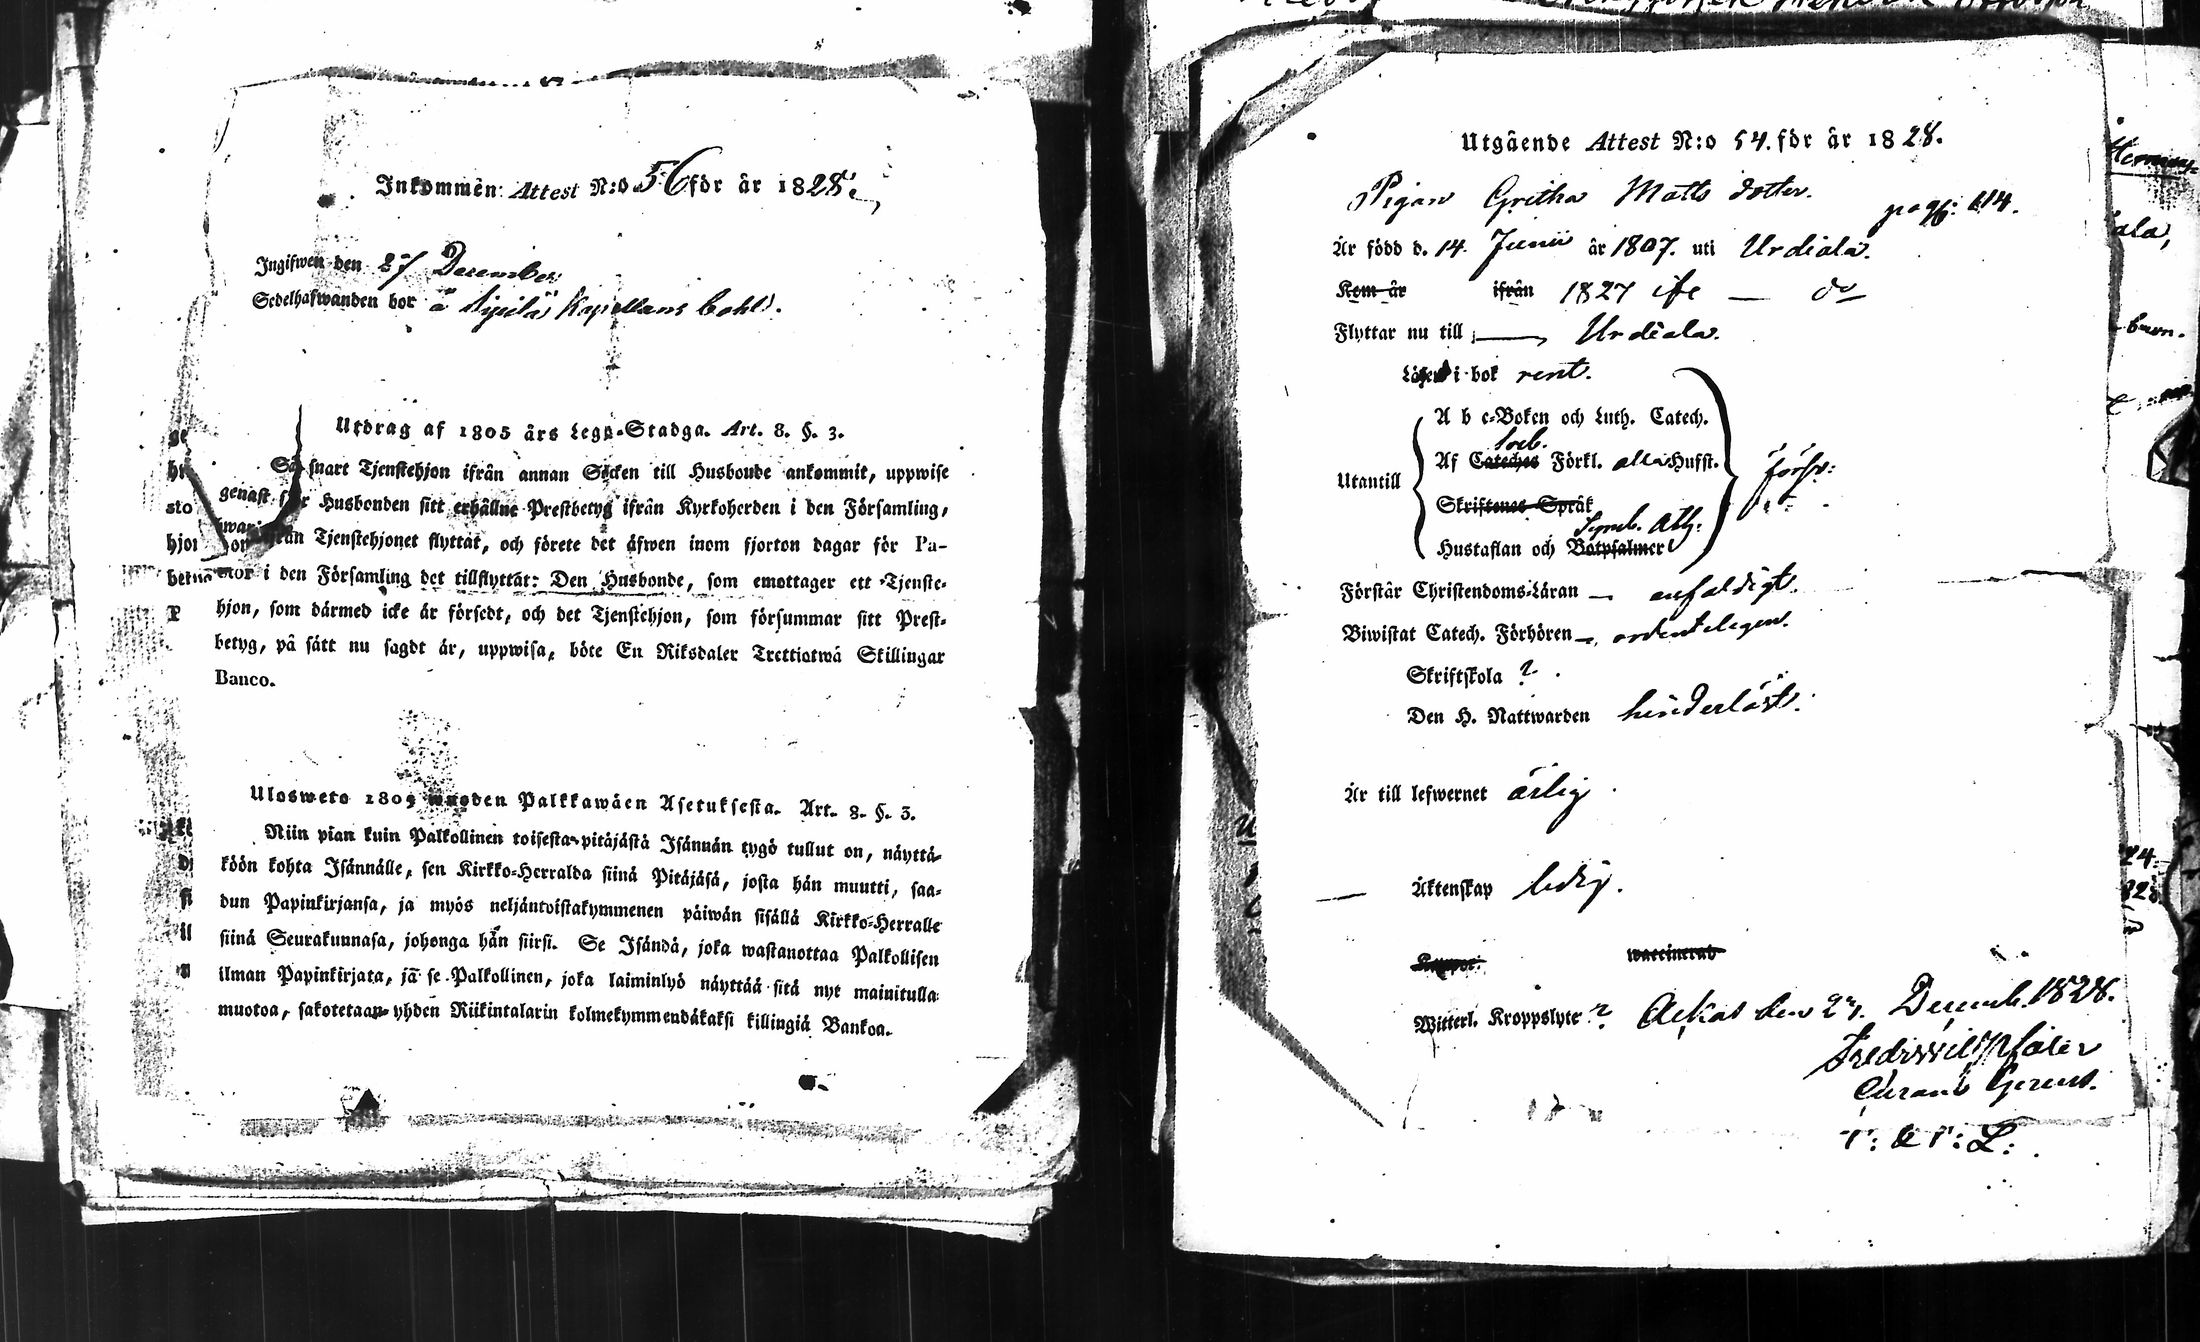 Inkommen Attest N:o 56 för år 1828.
Ingifwen den 27 December
Sedelhafwanden bor å Kapellans bohl.
Utdrag af 1805 års Lego-Stadga. Art. 8. §. 3.
Så snart Tjenstehjon ifrån annan Socken till Husbonde ankommit, uppwise
genast för Husbonden sitt erhållne Prestbetyg ifrån Kyrkoherden i den Församling,
hwarifrån Tjenstehjonet flyttat, och förete det äfwen inom fjorton dagar för Pa-
stor i den Församling det tillflyttat: Den Husbonde, som emottager ett Tjenste-
hjon, som därmed icke är försedt, och det Tjenstehjon, som försummar sitt Prest-
betyg, på sätt nu sagdt är, uppwisa, böte En Riksdaler Trettiotwå Skillingar
Banco.
Ulosweto 1805 wuoden Palkkawäen Asetuksesta. Art. 8. §. 3.
Niin pian kuin Palkollinen toisesta pitäjästä Isännän tygö tullut on, näyttä-
köön kohta Isännälle, sen Kirkko-Herralda siinä Pitäjäsä, josta hän muutti, saa-
dun Papinkirjansa, ja myös neljäntoistakymmenen päiwän sisällä Kirkko-Herralle
siinä Seurakunnasa, johonga hän siirsi. Se Isändä, joka wastanottaa Palkollisen
ilman Papinkirjata, ja se Palkollinen, joka laiminlyö näyttää sitä nyt mainitulla
muotoa, sakotetaan yhden Riikintalarin kolmekymmendäkaksi killingiä Bankoa.
Utgående Attest N:o 54. för år 1828.
Pigan Gretha Matts dotter.
pag: 114.
Är född d. 14. Junii år 1807. uti Urdiala.
Kom år ifrån 1827 ifr — do
Flyttar nu till — Urdiala.
Läser i bok rent.
A b c-Boken och Luth. Catech.
Sveb.
Utantill Af Cateches Förkl. alla Hufst. försv:
Skriftenes Språk
Symb. Ath:
Hustaflan och Botpsalmer
Förstår Christendoms-Läran — enfaldigt.
Biwistat Catech. Förhören — ordenteligen.
Skriftskola ?
Den H. Nattwarden hinderlöst.
Är till lefwernet ärlig
Äktenskap ledig.
waccinerad
Witterl. Kroppslyte ? Ackas den 27. Decemb. 1828.